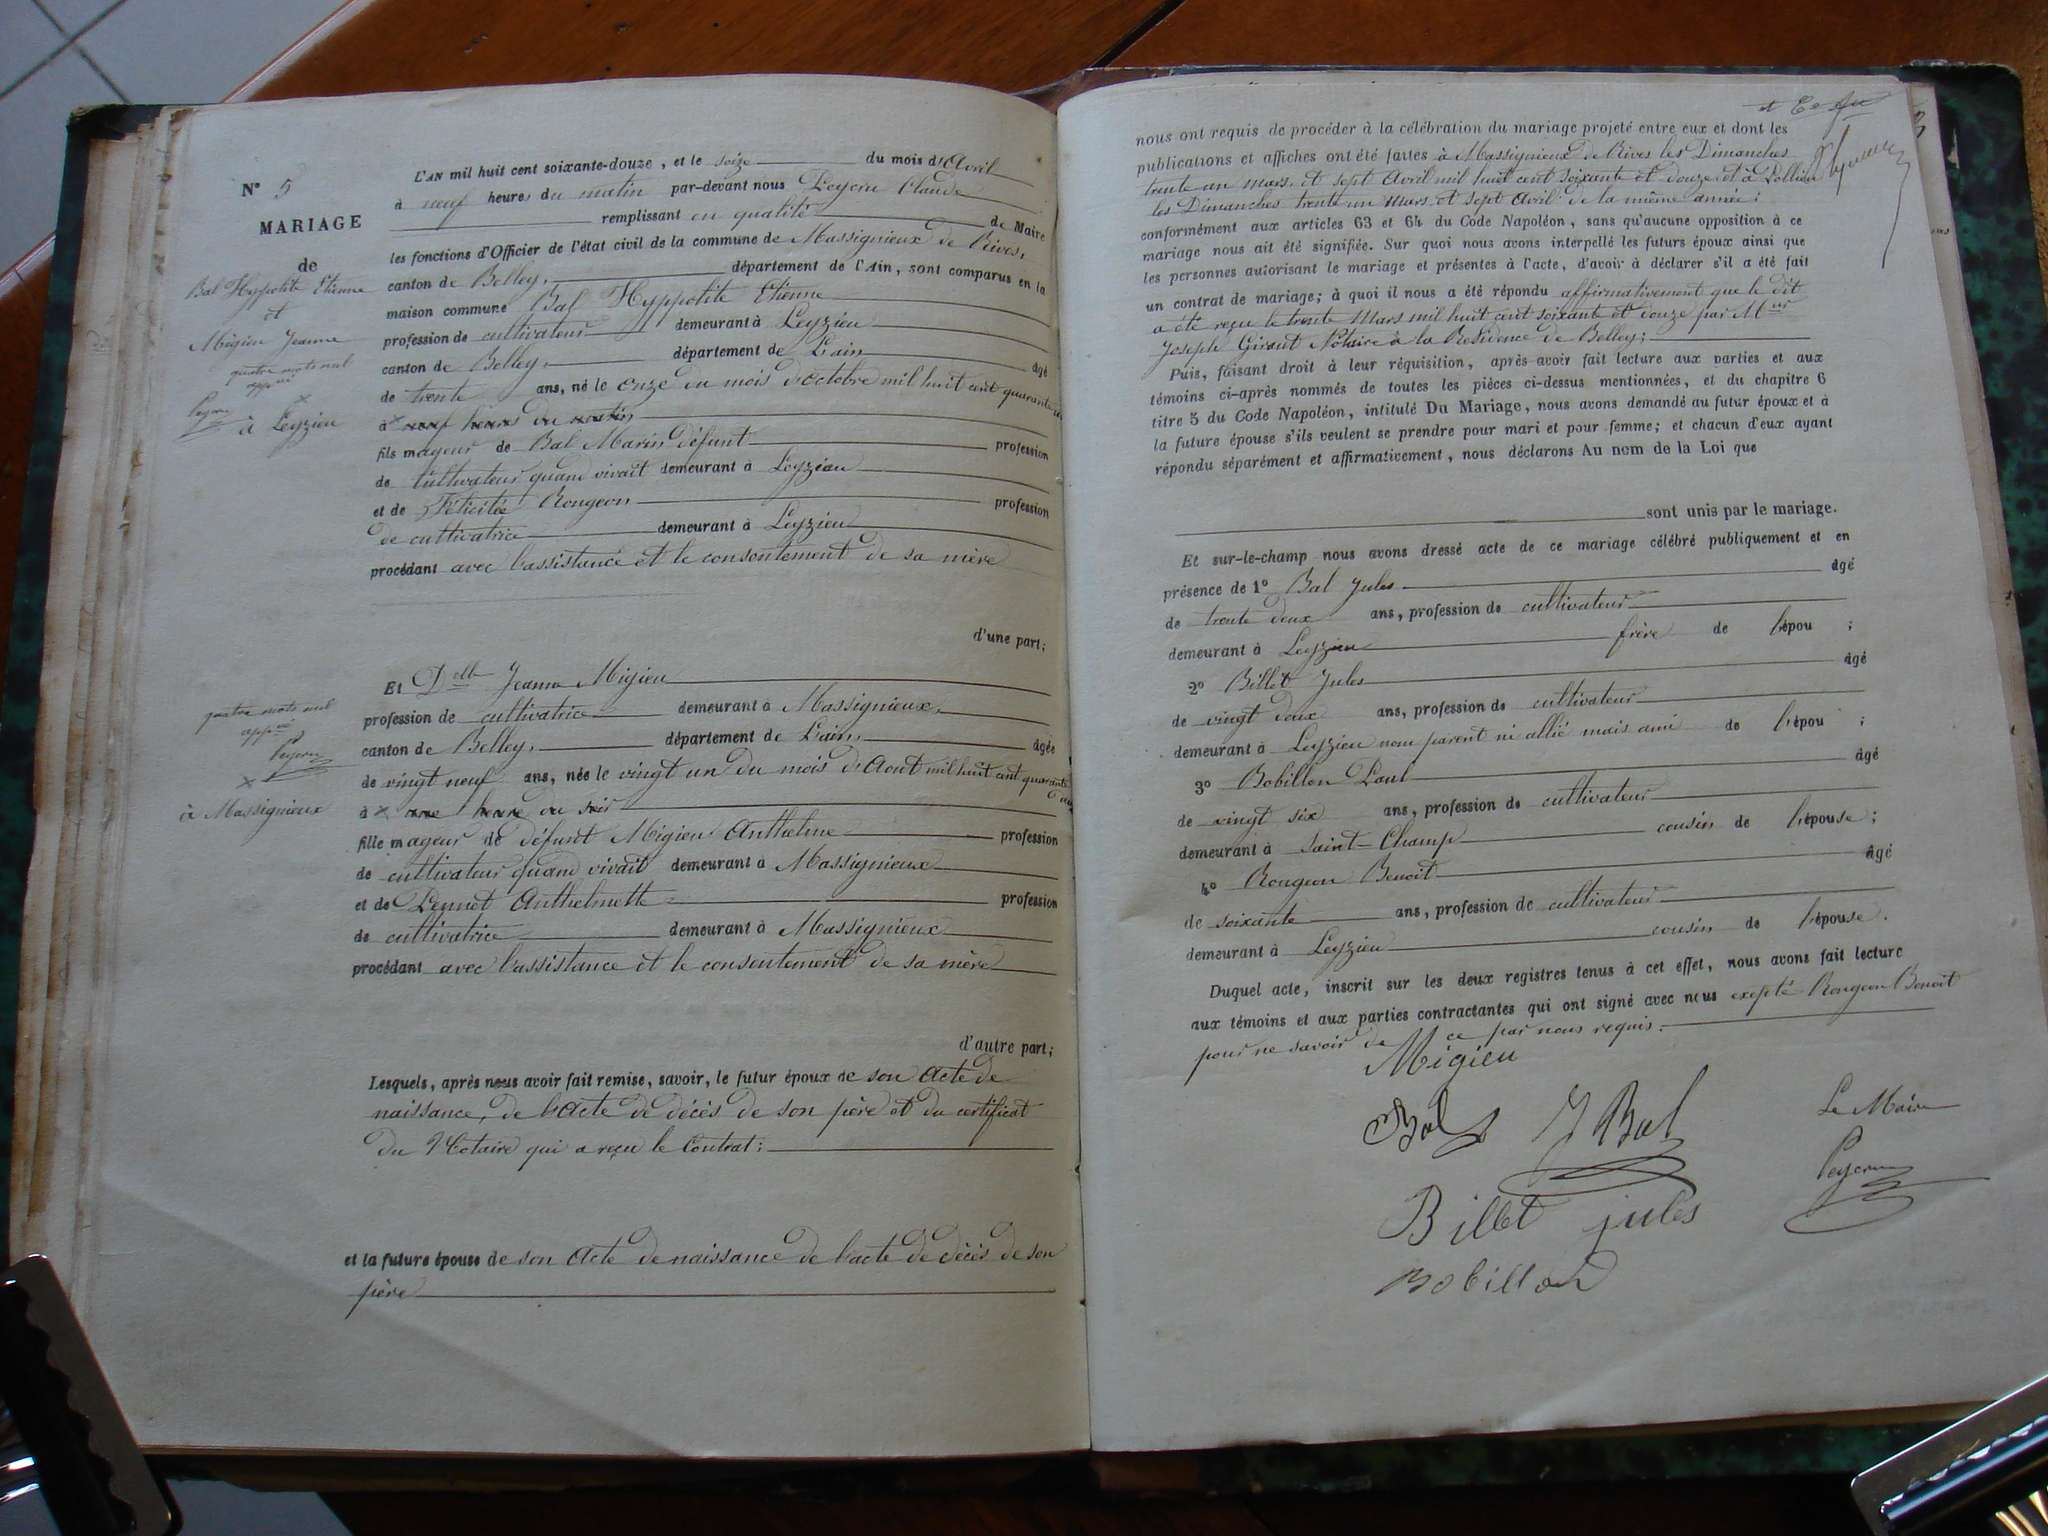 N° 5
MARIAGE
de
Bal Hyppolite Etienne
et
Migieu Jeanne
quatre mots nul
app vé
Peyern
x
à Leyzieu
L'AN mil huit cent soixante-douze, et le seize du mois d'Avril
à neuf heures du matin par-devant nous Peyern Claude
remplissant en qualité de Maire
les fonctions d'Officier de l'état civil de la commune de Massignieux de Rives,
canton de Belley, département de l'Ain, sont comparus en la
maison commune Bal Hyppolite Etienne
profession de cultivateur demeurant à Leyzieu
canton de Belley, département de L'ain âgé
de trente ans, né le onze du mois d'Octobre mil huit cent quarante un
à x neuf heures du matin
fils mageur de Bal Marin défunt profession
de Cultivateur quand vivait demeurant à Leyzieu
et de Félicitée Rougeon profession
de cultivatrice demeurant à Leyzieu
procédant avec l'assistance et le consentement de sa mère
d'une part;
quatre mots nul
app vé
Peyern
x
à Massignieux
Et Delle Jeanne Migieu
profession de cultivatrice demeurant à Massignieux,
canton de Belley, département de L'ain, âgée
de vingt neuf ans, née le vingt un du mois d'Aout mil huit cent quarante
deux
à x une heure du soir
fille mageur de défunt Migieu Anthelme profession
de cultivateur quand vivait demeurant à Massignieux
et de Pennet Anthelmette profession
de cultivatrice demeurant à Massignieux
procédant avec l'assistance et le consentement de sa mère
d'autre part;
Lesquels, après nous avoir fait remise, savoir, le futur époux de son Acte de
naissance, de l'Acte de décès de son père et du certificat
du Notaire qui a reçu le Contrat;
et la future épouse de son Acte de naissance de l'acte de décès de son
père
nous ont requis de procéder à la célébration du mariage projeté entre eux et dont les
publications et affiches ont été faites à Massignieux de Rives les Dimanches
trente un mars et sept Avril mil huit cent soixante et douze et à Pollieu
les Dimanches trente un mars et sept Avril de la même année;
conformément aux articles 63 et 64 du Code Napoléon, sans qu'aucune opposition à ce
mariage nous ait été signifiée. Sur quoi nous avons interpellé les futurs époux ainsi que
les personnes autorisant le mariage et présentes à l'acte, d'avoir à déclarer s'il a été fait
un contrat de mariage; à quoi il nous a été répondu affirmativement que le dit
a été reçu le trente Mars mil huit cent soixante et douze par Mtre
Joseph Giraut Notaire à la Résidence de Belley;
Puis, faisant droit à leur réquisition, après avoir fait lecture aux parties et aux
témoins ci-après nommés de toutes les pièces ci-dessus mentionnées, et du chapitre 6
titre 5 du Code Napoléon, intitulé Du Mariage, nous avons demandé au futur époux et à
la future épouse s'ils veulent se prendre pour mari et pour femme; et chacun d'eux ayant
répondu séparément et affirmativement, nous déclarons Au nom de la Loi que
sont unis par le mariage.
Et sur-le-champ nous avons dressé acte de ce mariage célébré publiquement et en
présence de 1° Bal Jules âgé
de trente deux ans, profession de cultivateur
demeurant à Leyzieu frère de l'épou ;
2° Billet Jules âgé
de vingt deux ans, profession de cultivateur
demeurant à Leyzieu non parent ni allié mais ami de l'épou ;
3° Bobillon Paul âgé
de vingt six ans, profession de cultivateur
demeurant à Saint-Champ cousin de l'épouse;
4° Rougeon Benoit âgé
de soixante ans, profession de cultivateur
demeurant à Leyzieu cousin de l'épouse.
Duquel acte, inscrit sur les deux registres tenus à cet effet, nous avons fait lecture
aux témoins et aux parties contractantes qui ont signé avec nous exepté Rougeon Benoit
pour ne savoir de ce par nous requis.
Migieu
Bal J Bal Le Maire
Peyern
Billet jules
Bobillon